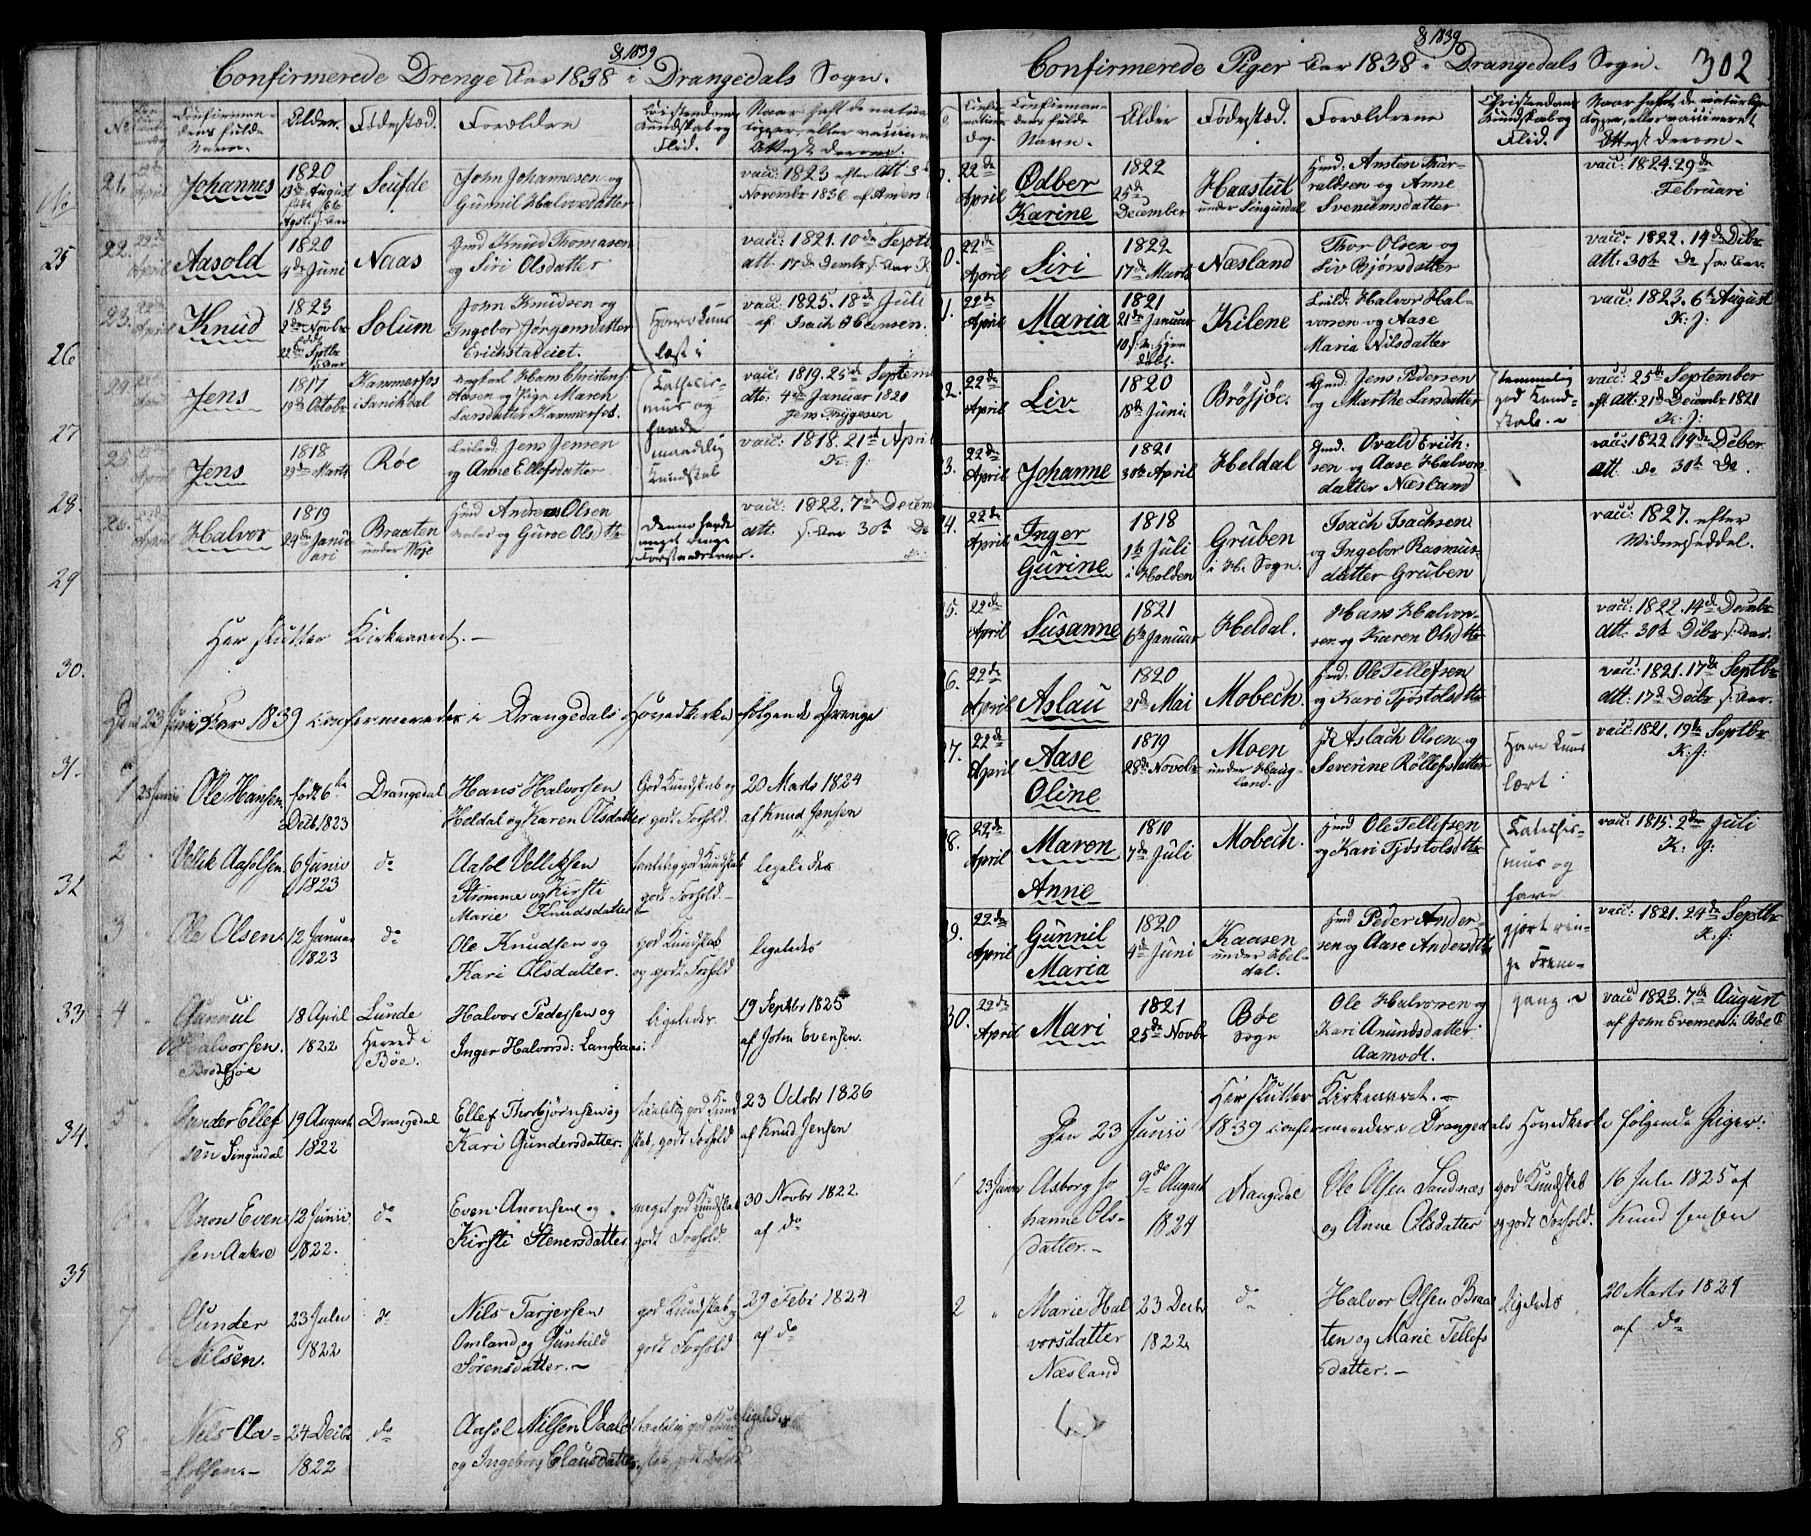 & 1839
Confirmerede Drenge Aar 1838 i Drangedals Sogn.
No
Confirman-
dens fulde
Navn.
Alder.
Fødested.
Forældre
Christendoms
Kundskab og
Flid.
Naar haft de natur
kopper, eller vaccineret
Attest derom.
21. 22de April
Johannes
1820
13de August
Seufde
John Johannesen og
Gunnil Halvorsdatter
vacc: 1823 efter Att 3d
November 1836 af Amsen
22. 22de April
Aasold
1820
4de Juni
Naas
Gmd Knud Thomasen
og Siri Olsdatter
vacc: 1821. 10de Septb
att. 17de Decembr s. Aar K
23. 22de April
Knud
1823
2den Novbr
født
22de Septbr
Solum
John Knudsen og
Ingebor Jørgensdatter
Erichstadeiet.
Have kuns
læst i
vacc: 1825. 18de Juli
af Isach Obensen.
24. 22de April
Jens
1817
19de Octobr
Kammerfos
i Sanikdal
Ungkarl Hans Christens
Aasen og Pige Maren
Larsdatter Kammerfos.
Cathecis-
mus og
havde
maadelig
Kundskab
vacc: 1819. 25de Septem
atte: 4de Januar 1820
Jens Trygesen
25. 22de April
Jens
1818
29de Marts
Røe
Leilend. Jens Jensen
og Anne Ellefsdatter
vacc: 1818. 21d April
K. J:
26. 22de April
Halvor
1819
24de Janu-
ari
Braaten
under Støje
Hmd Andreas Olsen
og Guroe Olsdtr
denne havde
meget ringe
Forstandsevner.
vacc: 1822. 7de Decem
att: s. Aar 30th De
K:
Her slutter Kirkeaaret. -
Den 23 Junii Aar 1839 confirmeredes i Drangedals Hovedkirke følgende Drenge
1
23 Junii
Ole Hansen
født 6te
Decb 1823
Drangedal
Hans Halvorsen
Heldal og Karen Olsdatter
God Kundskab og
godt Forhold.
20 Marts 1824
af Knud Jensen
2
Vellik Aasolsen.
6 Junii
1823
do
Aasol Velliksen
Strømme og Kirsti
Marie Knudsdatter
temmelig god Kundskab
godt Forhold. -
ligeledes
3
Ole Olsen.
12 Januar
1823
do
Ole Knudsen og
Kari Olsdatter.
god Kundskab
og godt Forhold
ligeledes
4
Gunnul
Halvorsen.
Brødsjøe
18 April
1822
Lunde
Herred i
Bøe.
Halvor Pedersen og
Inger Halvorsd: Langkaas:
ligeledes.
19 Septbr 1825
af John Evensen.
5
Gunder Ellef
sen Singusdal
19 August
1822
Drangedal
Ellef Thorbjørnsen og
Kari Gundersdatter.
temmelig god Kund
skab, godt Forhold
23 Octobr 1826
af Knud Jensen
6
Anon Even
sen Aakre
12 Junii
1822.
do
Even Anonsen og
Kirsti Stenersdatter.
meget god Kundskab
godt Forhold
30 Novbr 1822.
af do
7
Gunder
Nilsen.
23 Julii
1822
do
Nils Tarjersen
Omland og Gunhild
Sørensdatter. -
god Kundskab og
godt Forhold
29 Febr 1824
af do
8
Nils Aa-
solsen. -
24 Decbr
1822
do
Aasol Nilsen Vaale
og Ingeborg Clausdatter.
temmelig god Kund
skab, godt Forhold
ligeledes
25
26
27
28
29
30.
31.
32
33
34.
35
& 1839
Confirmerede Piger Aar 1838 i Drangedals Sogn.
302
Confir-
mations
Dag.
Confirman-
dens fulde
Navn.
Alder
Fødested.
Forældrene
Christendoms
Kundskab og
Flid.
Naar haft de naturlige
kopper, eller vaccineret
Attest derom.
22de April
Odber
Karine
1822
25de
December
Haastul
under Singusdal
Hmd. Ansten Thar-
raldsen og Anne
Svenumsdatter
vacc: 1824. 29de
Februari
0. 22de April
Siri
1822
17de Marts
Næsland
Thor Olsen og
Liv Bjønsdatter
vacc: 1822. 14de Dcbr
att. 30te De s. Aar.
1. 22de April
Maria
1821
21de Januar
10 s. M. hjem
døbt.
Kilene
Leild: Halvor Hal-
vorsen og Aase
Maria Nilsdatter
vacc: 1823. 6te August
K. J:
2. 22de April
Liv
1820
18de Juni
Brøsjøe.
Gmd. Jens Pedersen
og Marthe Larsdatter
temmelig
god Kund-
skab. ~
vacc: 25de September
eft. Att: 21de Decembr 1821
K. J:
3. 22de April
Johanne
1821
30te April
Heldal
Gmd. Ovald Erich-
sen og Aase Halvors
datter Næsland
vacc: 1822 14de Dcber
Att. de 30te De.
4. 22de April
Inger
Gurine
1818
1te Juli
i Holden
Gruben
i H. Sogn.
Isach Isachsen
og Ingebor Rasmus-
datter Gruben
vacc: 1827. efter
Widerseddel.
5. 22de April
Susanne
1821
6te Januar
Heldal.
Hans Halvor-
sen og Karen Olsdttr
vacc: 1822. 14de Decmbr
Att: 30te Dcbr s. Aar.
6. 22de April
Aslau
1820
21de Mai
Mobech.
Hmd. Ole Tellefsen
og Kari Tjøstolsdttr
vacc: 1821. 17de Septbr
Att. 17de Decbr s. Aar.
7. 22de April
Aase
Oline
1819
28de Novebr
Moen
under Haug-
land.
Aslach Olsen og
Severine Røllefsdatter
Have kuns
lært
vacc: 1821. 19de Septbr
K. J:
8. 22de April
Maren
Anne
1810
7de Juli
Mobech.
Hmd Ole Tellefsen
og Kari Tjøstolsdttr
Catechis-
mus og
have
vacc: 1815. 2den Juli
K. J:
9. 22de April
Gunnil
Maria
1820
4de Juni
Kaasen
under Hel-
dal.
Hmd Peder Ander
sen og Aase Andersdtr
gjort rin-
ge Frem-
gang. ~
vacc: 1821. 24de Septbr
K. J:
30. 22de April
Mari
1821
25de Novbr
Bøe
Sogn
Ole Halvorsen og
Kari Anundsdatter
Aamodt.
vacc 1823. 7de August
af John Evensen i Bøe
Her slutter Kirkeaaret. -
Den 23 Junii 1839 confirmeredes i Drangedals Hovedkirke følgende Piger.
1
23 Junii
Asborg Jo
hanne Ols-
datter. -
9de August
1824
Drangedal
Ole Olsen Sandnæs
og Anne Olsdatter
god Kundskab
og godt Forhold.
16 Julii 1825 af
Knud Jensen
2
Marie Hal
vorsdatter
Næsland
23 Decbr
1822
do
Halvor Olsen Braa
ten og Marie Tellefs
datter. -
ligeledes
20 Marts 1824
af do